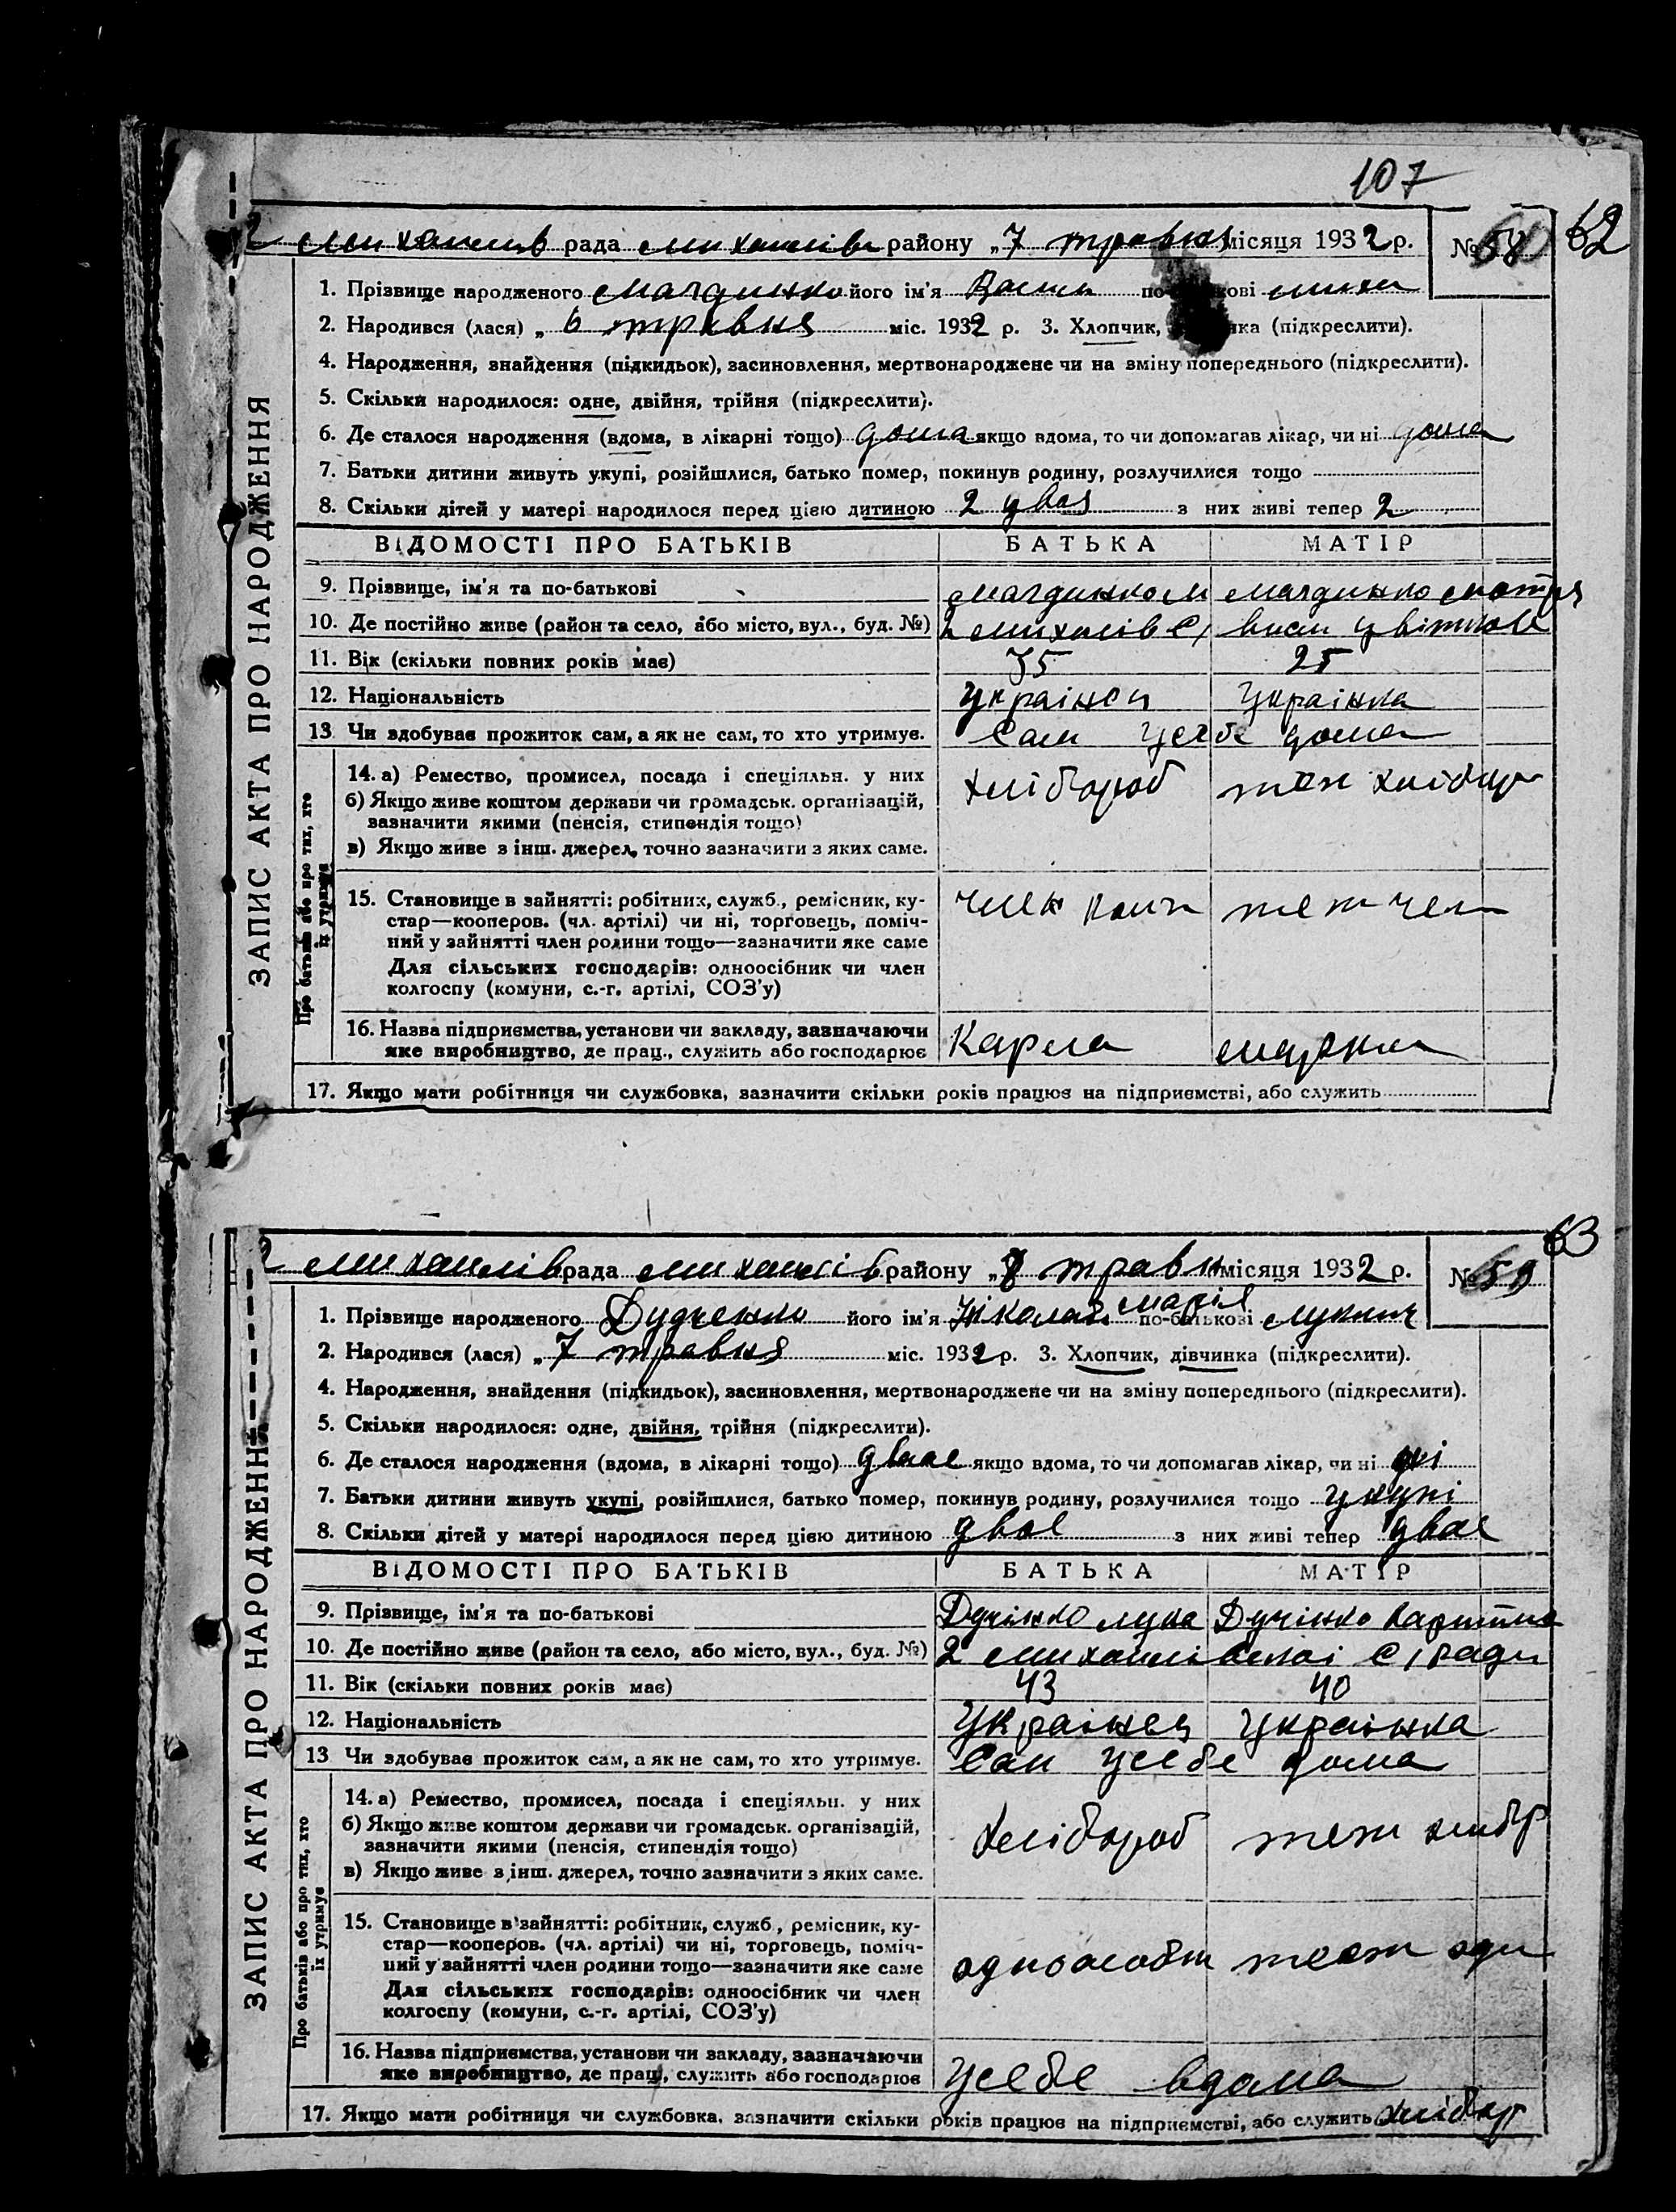 107
рада району „7 травня місяця 1932 р. № 58 62
1. Прізвище народженого його ім'я по кові
2. Народився (лася) „ 6 травня міс. 1932 р. 3. Хлопчик, нка (підкреслити).
4. Народження, знайдення (підкидьок), засиновлення, мертвонароджене чи на зміну попереднього (підкреслити).
5. Скільки народилося: одне, двійня, трійня (підкреслити).
6. Де сталося народження (вдома, в лікарні тощо) дома якщо вдома, то чи допомагав лікар, чи ні дома
7. Батьки дитини живуть укупі, розійшлися, батько помер, покинув родину, розлучилися тощо
8. Скільки дітей у матері народилося перед цією дитиною 2 двоя з них живі тепер 2
ВІДОМОСТІ ПРО БАТЬКІВ БАТЬКА МАТІР
9. Прізвище, ім'я та по-батькові
10. Де постійно живе (район та село, або місто, вул., буд. №)
11. Вік (скільки повних років має) 35 25
12. Національність Українец Українка
13 Чи здобував прожиток сам, а як не сам, то хто утримує. Сам усебе дома
14. а) Ремество, промисел, посада і спеціяльн. у них хлібороб теж
б) Якщо живе коштом держави чи громадськ. організацій,
зазначити якими (пенсія, стипендія тощо)
в) Якщо живе з інш. джерел, точно зазначити з яких саме.
15. Становище в зайнятті: робітник, служб., ремісник, ку-
стар—кооперов. (чл. артілі) чи ні, торговець, поміч-
ний у зайнятті член родини тощо—зазначити яке саме
Для сільських господарів: одноосібник чи член
колгоспу (комуни, с.-г. артілі, СОЗ'у)
член теж член
16. Назва підприємства, установи чи закладу, зазначаючи
яке виробництво, де прац., служить або господарює
Карла Маркса
17. Якщо мати робітниця чи службовка, зазначити скільки років працює на підприємстві, або служить
ЗАПИС АКТА ПРО НАРОДЖЕННЯ
Про батьків або про тих, хто
їх утримує
63
рада району „8 травня місяця 1932 р. № 59
1. Прізвище народженого Дудченко його ім'я Ніколай Марія по-батькові
2. Народився (лася) „ 7 травня міс. 1932 р. 3. Хлопчик, дівчинка (підкреслити).
4. Народження, знайдення (підкидьок), засиновлення, мертвонароджене чи на зміну попереднього (підкреслити).
5. Скільки народилося: одне, двійня, трійня (підкреслити).
6. Де сталося народження (вдома, в лікарні тощо) двоє якщо вдома, то чи допомагав лікар, чи ні
7. Батьки дитини живуть укупі, розійшлися, батько помер, покинув родину, розлучилися тощо укупі
8. Скільки дітей у матері народилося перед цією дитиною двоє з них живі тепер двоє
ВІДОМОСТІ ПРО БАТЬКІВ БАТЬКА МАТІР
9. Прізвище, ім'я та по-батькові Дучінко Лука Дучінко
10. Де постійно живе (район та село, або місто, вул., буд. №) Михайлівскоі С/ради
11. Вік (скільки повних років має) 43 40
12. Національність Українец Українка
13 Чи здобував прожиток сам, а як не сам, то хто утримує. Сам усебе дома
14. а) Ремество, промисел, посада і спеціяльн. у них хлібороб теж
б) Якщо живе коштом держави чи громадськ. організацій,
зазначити якими (пенсія, стипендія тощо)
в) Якщо живе з інш. джерел, точно зазначити з яких саме.
15. Становище в зайнятті: робітник, служб., ремісник, ку-
стар—кооперов. (чл. артілі) чи ні, торговець, поміч-
ний у зайнятті член родини тощо—зазначити яке саме
Для сільських господарів: одноосібник чи член
колгоспу (комуни, с.-г. артілі, СОЗ'у)
теж
16. Назва підприємства, установи чи закладу, зазначаючи
яке виробництво, де прац., служить або господарює
усебе вдома
17. Якщо мати робітниця чи службовка, зазначити скільки років працює на підприємстві, або служить
ЗАПИС АКТА ПРО НАРОДЖЕННЯ
Про батьків або про тих, хто
їх утримує